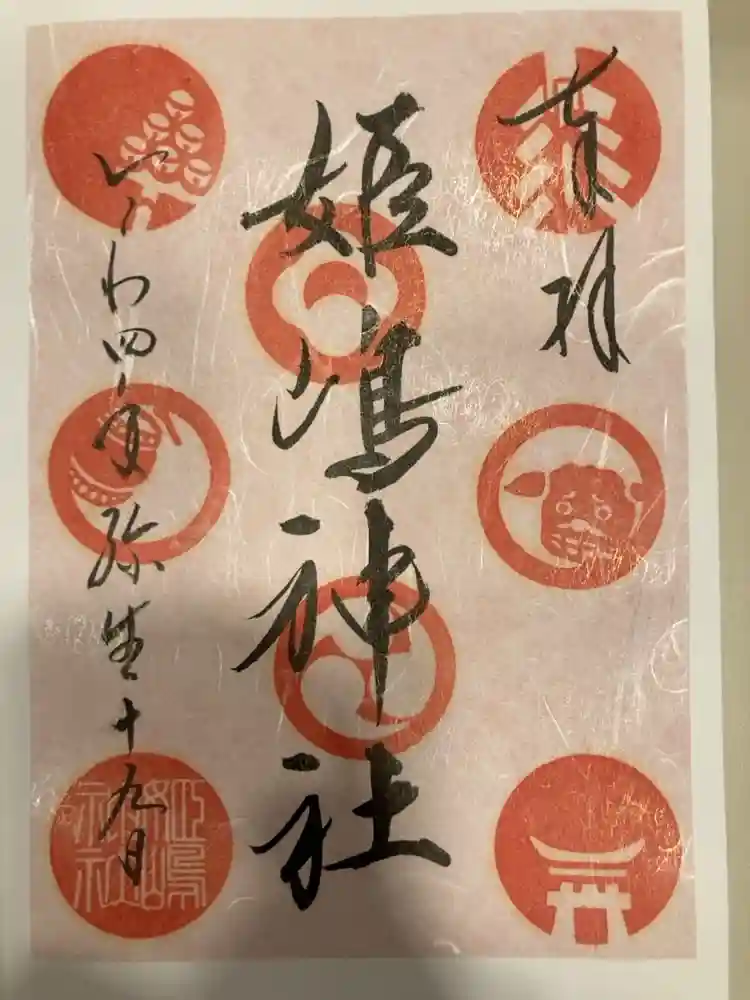 奉拝
姫嶋神社
れいわ四年弥生十九日
姫嶋
神社